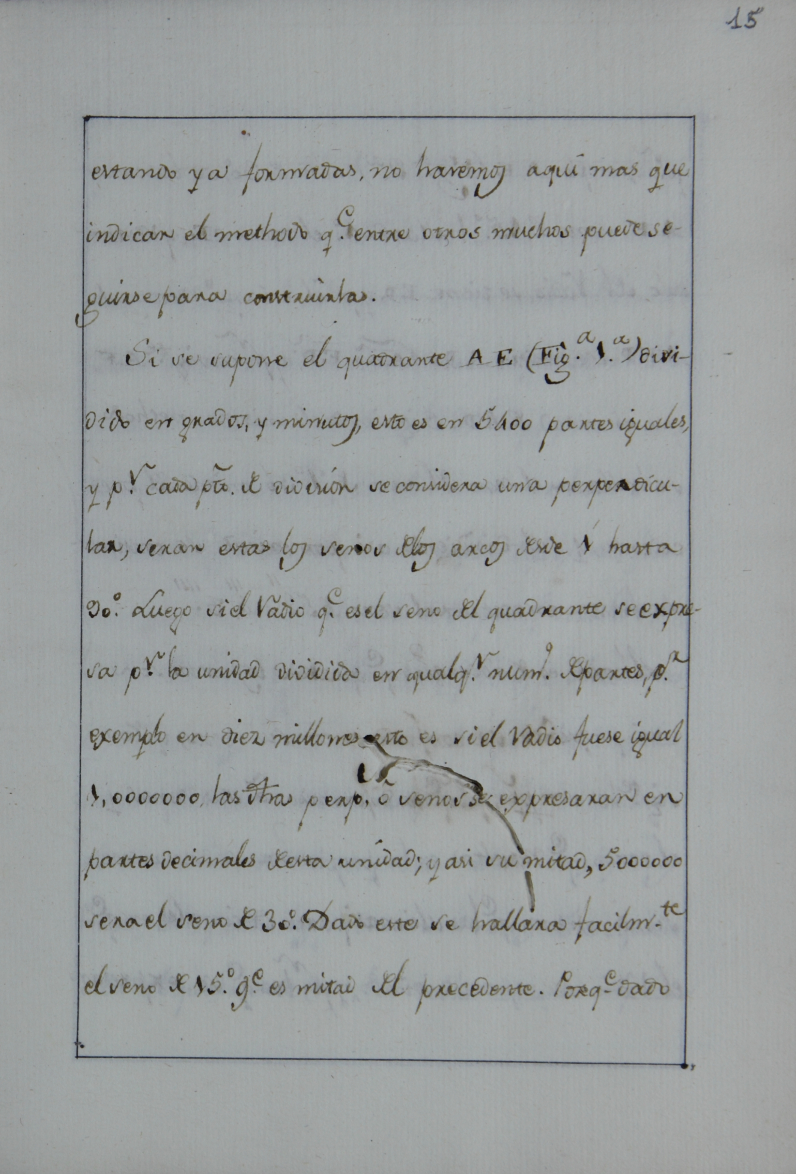 15
estando ya formadas, no haremos aquí mas que
indicar el methodo q.e entre otros muchos puede se-
guirse para construirlas.
Si se supone el quadrante A E (Fig.a 1.a) divi-
dido en grados, y minutos, esto es en 5400 partes iguales,
y p.r cada pto. de división se considera una perpendicu-
lar, seran estas los senos de los arcos desde 1 hasta
90.o Luego si el Radio q.e es el seno del quadrante se expre-
sa p.r la unidad dividida en qualq.r num.o de partes, p.r
exemplo en diez millones esto es si el Radio fuese igual
1,0000000, las dhas perp. o senos se expresaran en
partes decimales de esta unidad; y asi su mitad, 5000000
sera el seno de 30.o Dado este se hallara facilm.te
el seno de 15.o q.e es mitad del precedente. Porq.e dado